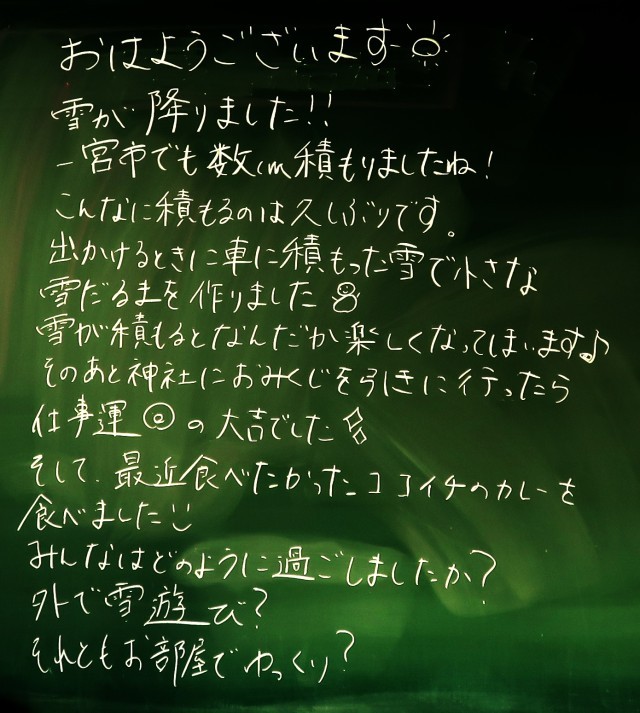 おはようございます
雪が降りました!!
一宮市でも数cm積もりましたね!
こんなに積もるのは久しぶりです。
出かけるときに車に積もった雪で小さな
雪だるまを作りました
雪が積もるとなんだか楽しくなってしまいます♪
そのあと神社におみくじを引きに行ったら
仕事運◎の大吉でした
そして、最近食べたかったココイチのカレーを
食べました
みんなはどのように過ごしましたか?
外で雪遊び?
それともお部屋でゆっくり?